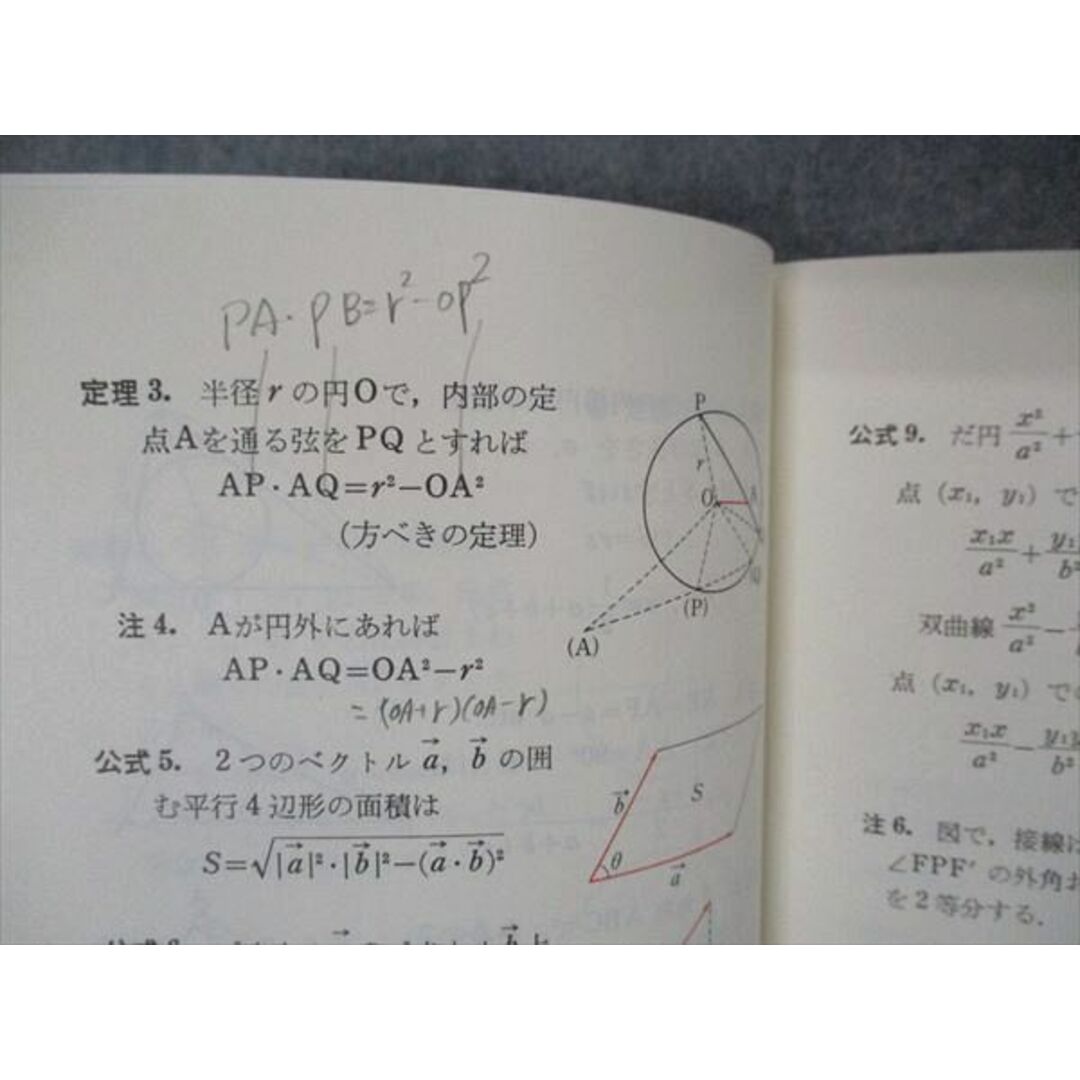 PA・PB=r²-OP²
定理3. 半径 r の円Oで，内部の定
点Aを通る弦をPQとすれば
AP・AQ=r²−OA²
(方べきの定理)
P
r
O
A
Q
(P)
(A)
注4. Aが円外にあれば
AP・AQ=OA²−r²
=(OA+r)(OA-r)
公式5. 2つのベクトル a⃗, b⃗ の囲
む平行4辺形の面積は
S=√|a⃗|²・|b⃗|²−(a⃗・b⃗)²
b⃗
S
θ
a⃗
公式9. だ円 x²/a² +
点 (x₁, y₁) で
x₁x/a² + y₁/b²
双曲線 x²/a² −
点 (x₁, y₁) で
x₁x/a² − y₁/b²
注6. 図で，接線
∠FPF′ の外角
を2等分する.